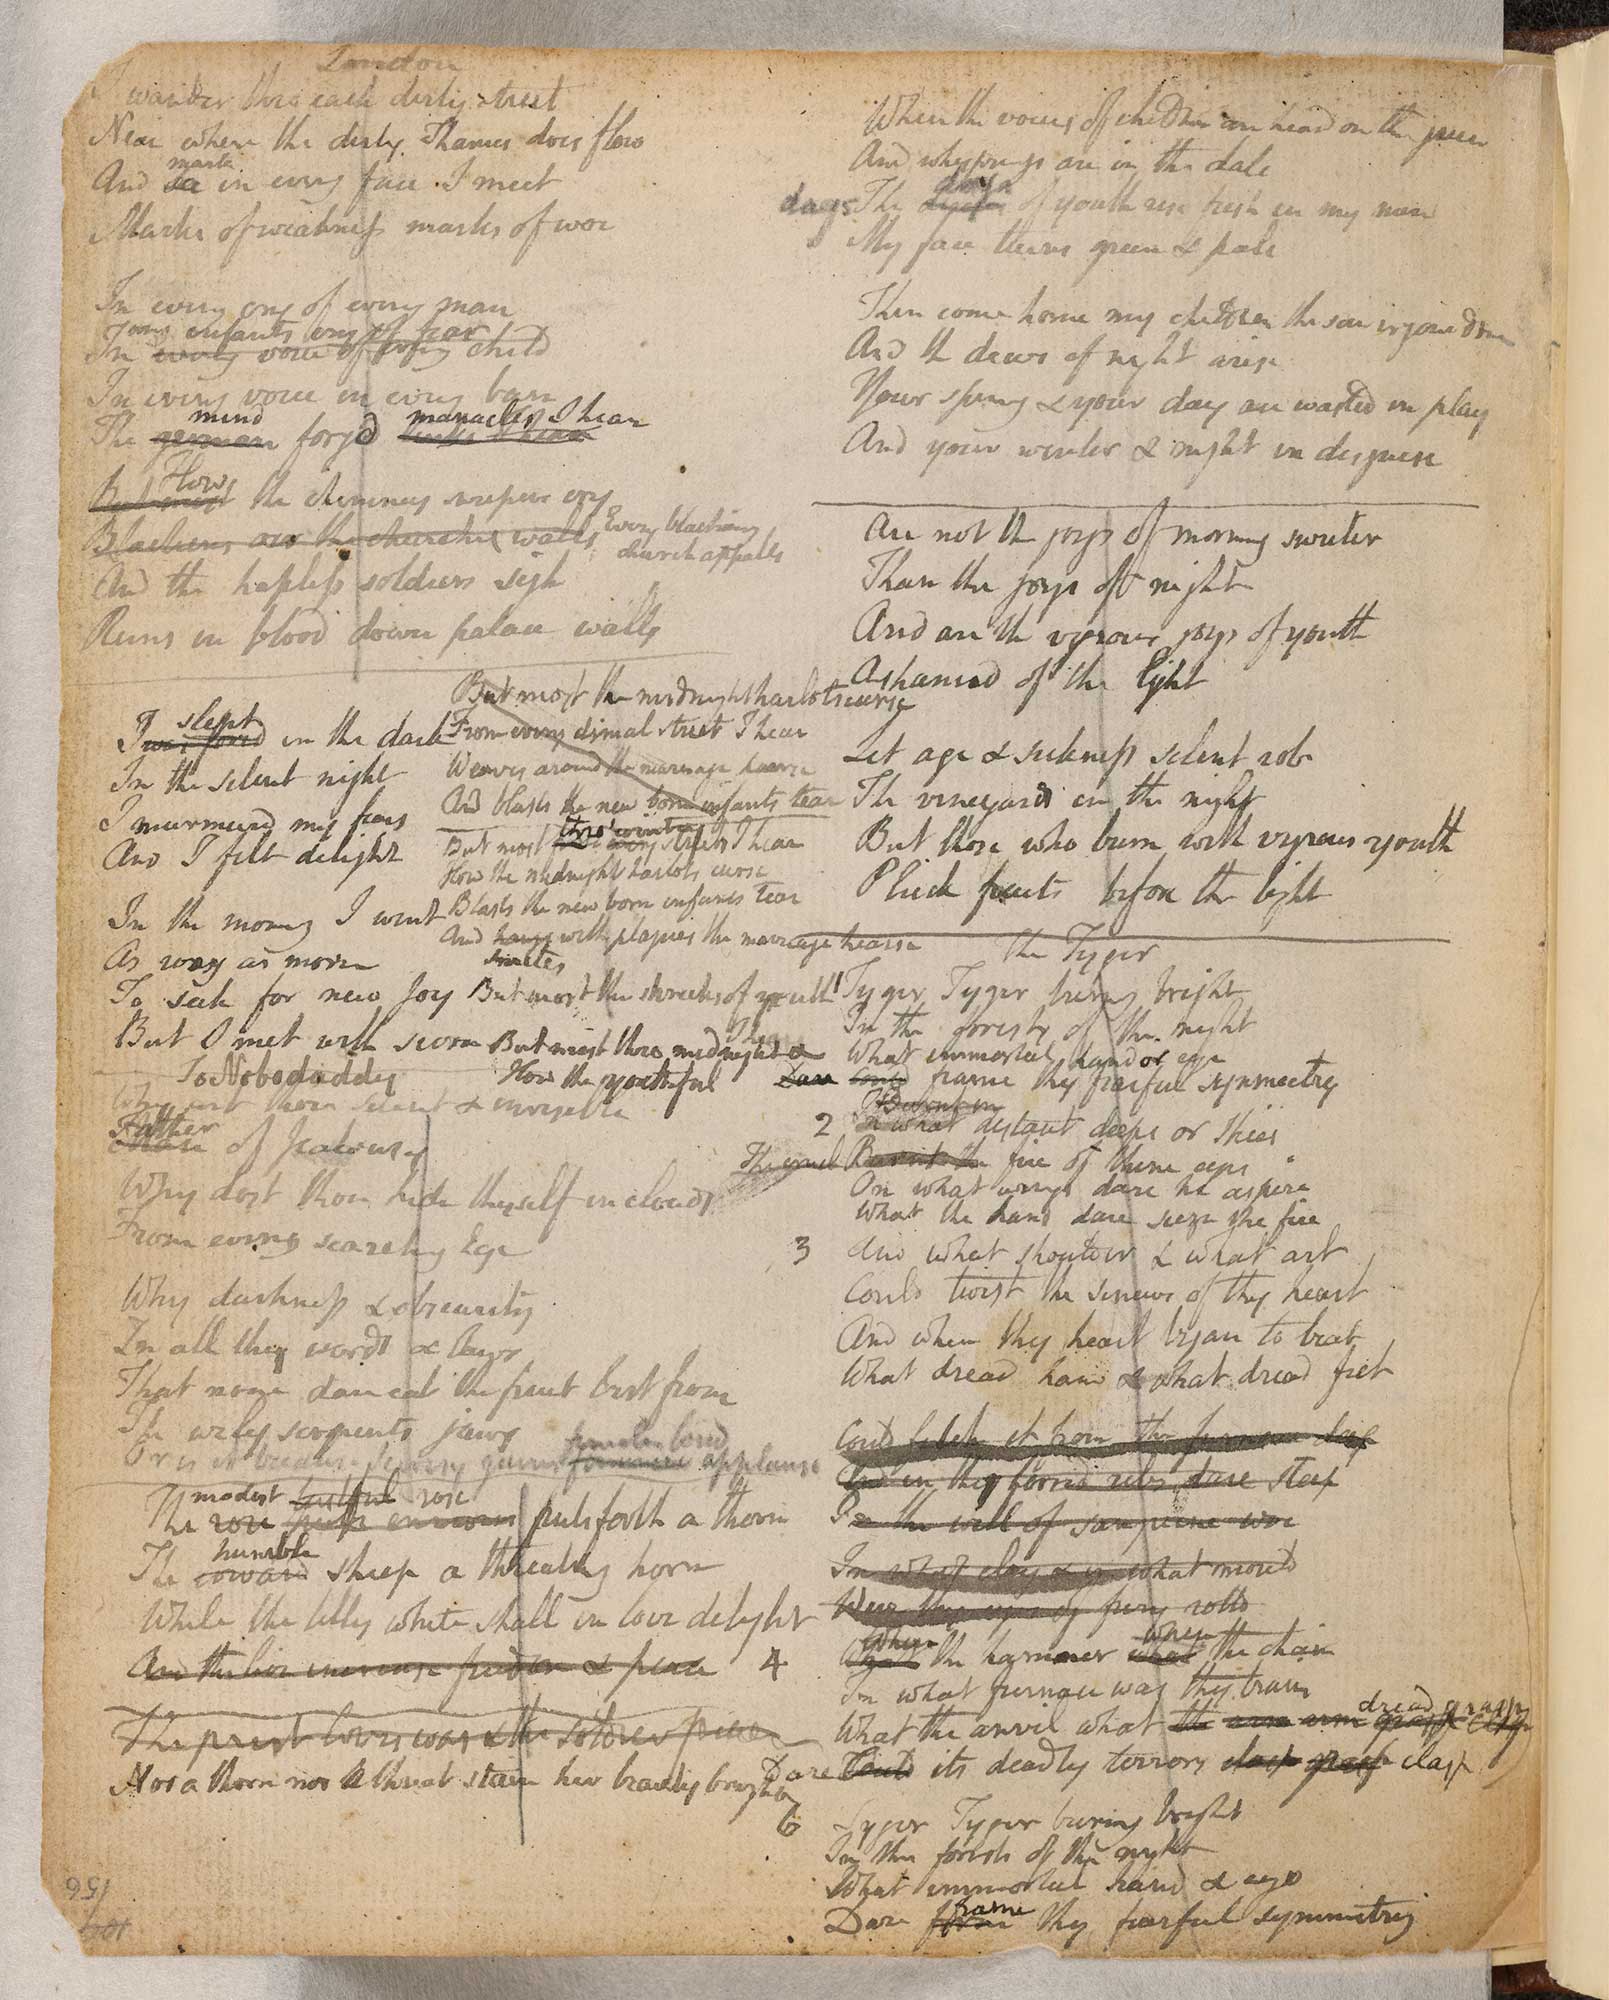 London
I wander thro each dirty street
Near where the dirty Thames does flow
mark
And see in every face I meet
Marks of weakness marks of woe
In every cry of every man
In every infants cry of fear
In every voice of every child
In every voice in every ban
mind manacles I hear
The german forgd links I hear
How
But most the chimney sweepers cry
Blackens oer the churches walls Every blackning
church appalls
And the hapless soldiers sigh
Runs in blood down palace walls
But most the midnight harlots curse
From every dismal street I hear
Weaves around the marriage hearse
And blasts the new born infants tear
thro wintry
But most from every streets I hear
How the midnight harlots curse
Blasts the new born infants tear
And hangs with plagues the marriage hearse
smites
But most the shrieks of youth I hear
But most thro midnight &
How the youthful
slept
I was fond in the dark
In the silent night
I murmured my fears
And I felt delight
In the morning I went
As rosy as morn
To seek for new Joy
But I met with scorn
To Nobodaddy
Why art thou silent & invisible
Father
of Jealousy
Why dost thou hide thyself in clouds
From every searching Eye
Why darkness & obscurity
In all thy words & laws
That none dare eat the fruit but from
The wily serpents jaws
females loud
Or is it because Secresy gains applause
modest lustful rose
The rose puts envious puts forth a thorn
humble
The coward sheep a threatning horn
While the lilly white shall in love delight
And the lion increase freedom & peace
The priest loves war & the soldier peace
Nor a thorn nor a threat stain her beauty bright
When the voices of children are heard on the green
And whisprings are in the dale
days
days The of youth rise fresh in my mind
My face turns green & pale
Then come home my children the sun is gone down
And the dews of night arise
Your spring & your day are wasted in play
And your winter & night in disguise
Are not the joys of morning sweeter
Than the joys of night
And are the vigrous joys of youth
Ashamed of the light
Let age & sickness silent rob
The vineyards in the night
But those who burn with vigrous youth
Pluck fruits before the light
The Tyger
1 Tyger Tyger burning bright
In the forests of the night
What immortal hand or eye
Dare Could frame thy fearful symmetry
Burnt in
2 In what distant deeps or skies
The cruel Burnt the fire of thine eyes
On what wings dare he aspire
What the hand dare sieze the fire
3 And what shoulder & what art
Could twist the sinews of thy heart
And when thy heart began to beat
What dread hand & what dread feet
Could fetch it from the furnace deep
And in thy horrid ribs dare steep
In the well of sanguine woe
In what clay & in what mould
Were thy eyes of fury rolld
Where where
4 What the hammer what the chain
In what furnace was thy brain
dread grasp
What the anvil what the arm arm grasp clasp
Dare Could its deadly terrors clasp grasp clasp
6 Tyger Tyger burning bright
In the forests of the night
What immortal hand & eye
frame
Dare form thy fearful symmetry
156